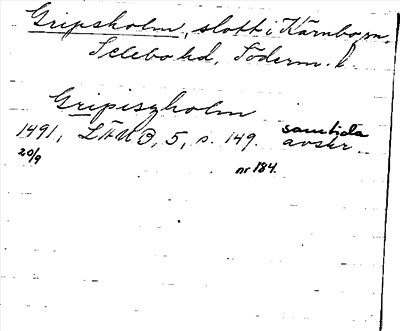 Gripsholm, slott i Kärnbo sn.
Selebo hd, Söderm. l.
Gripisholm
1491, LÄMÖ, 5, s. 149. samtida
20/9 avskr.
nr 184.